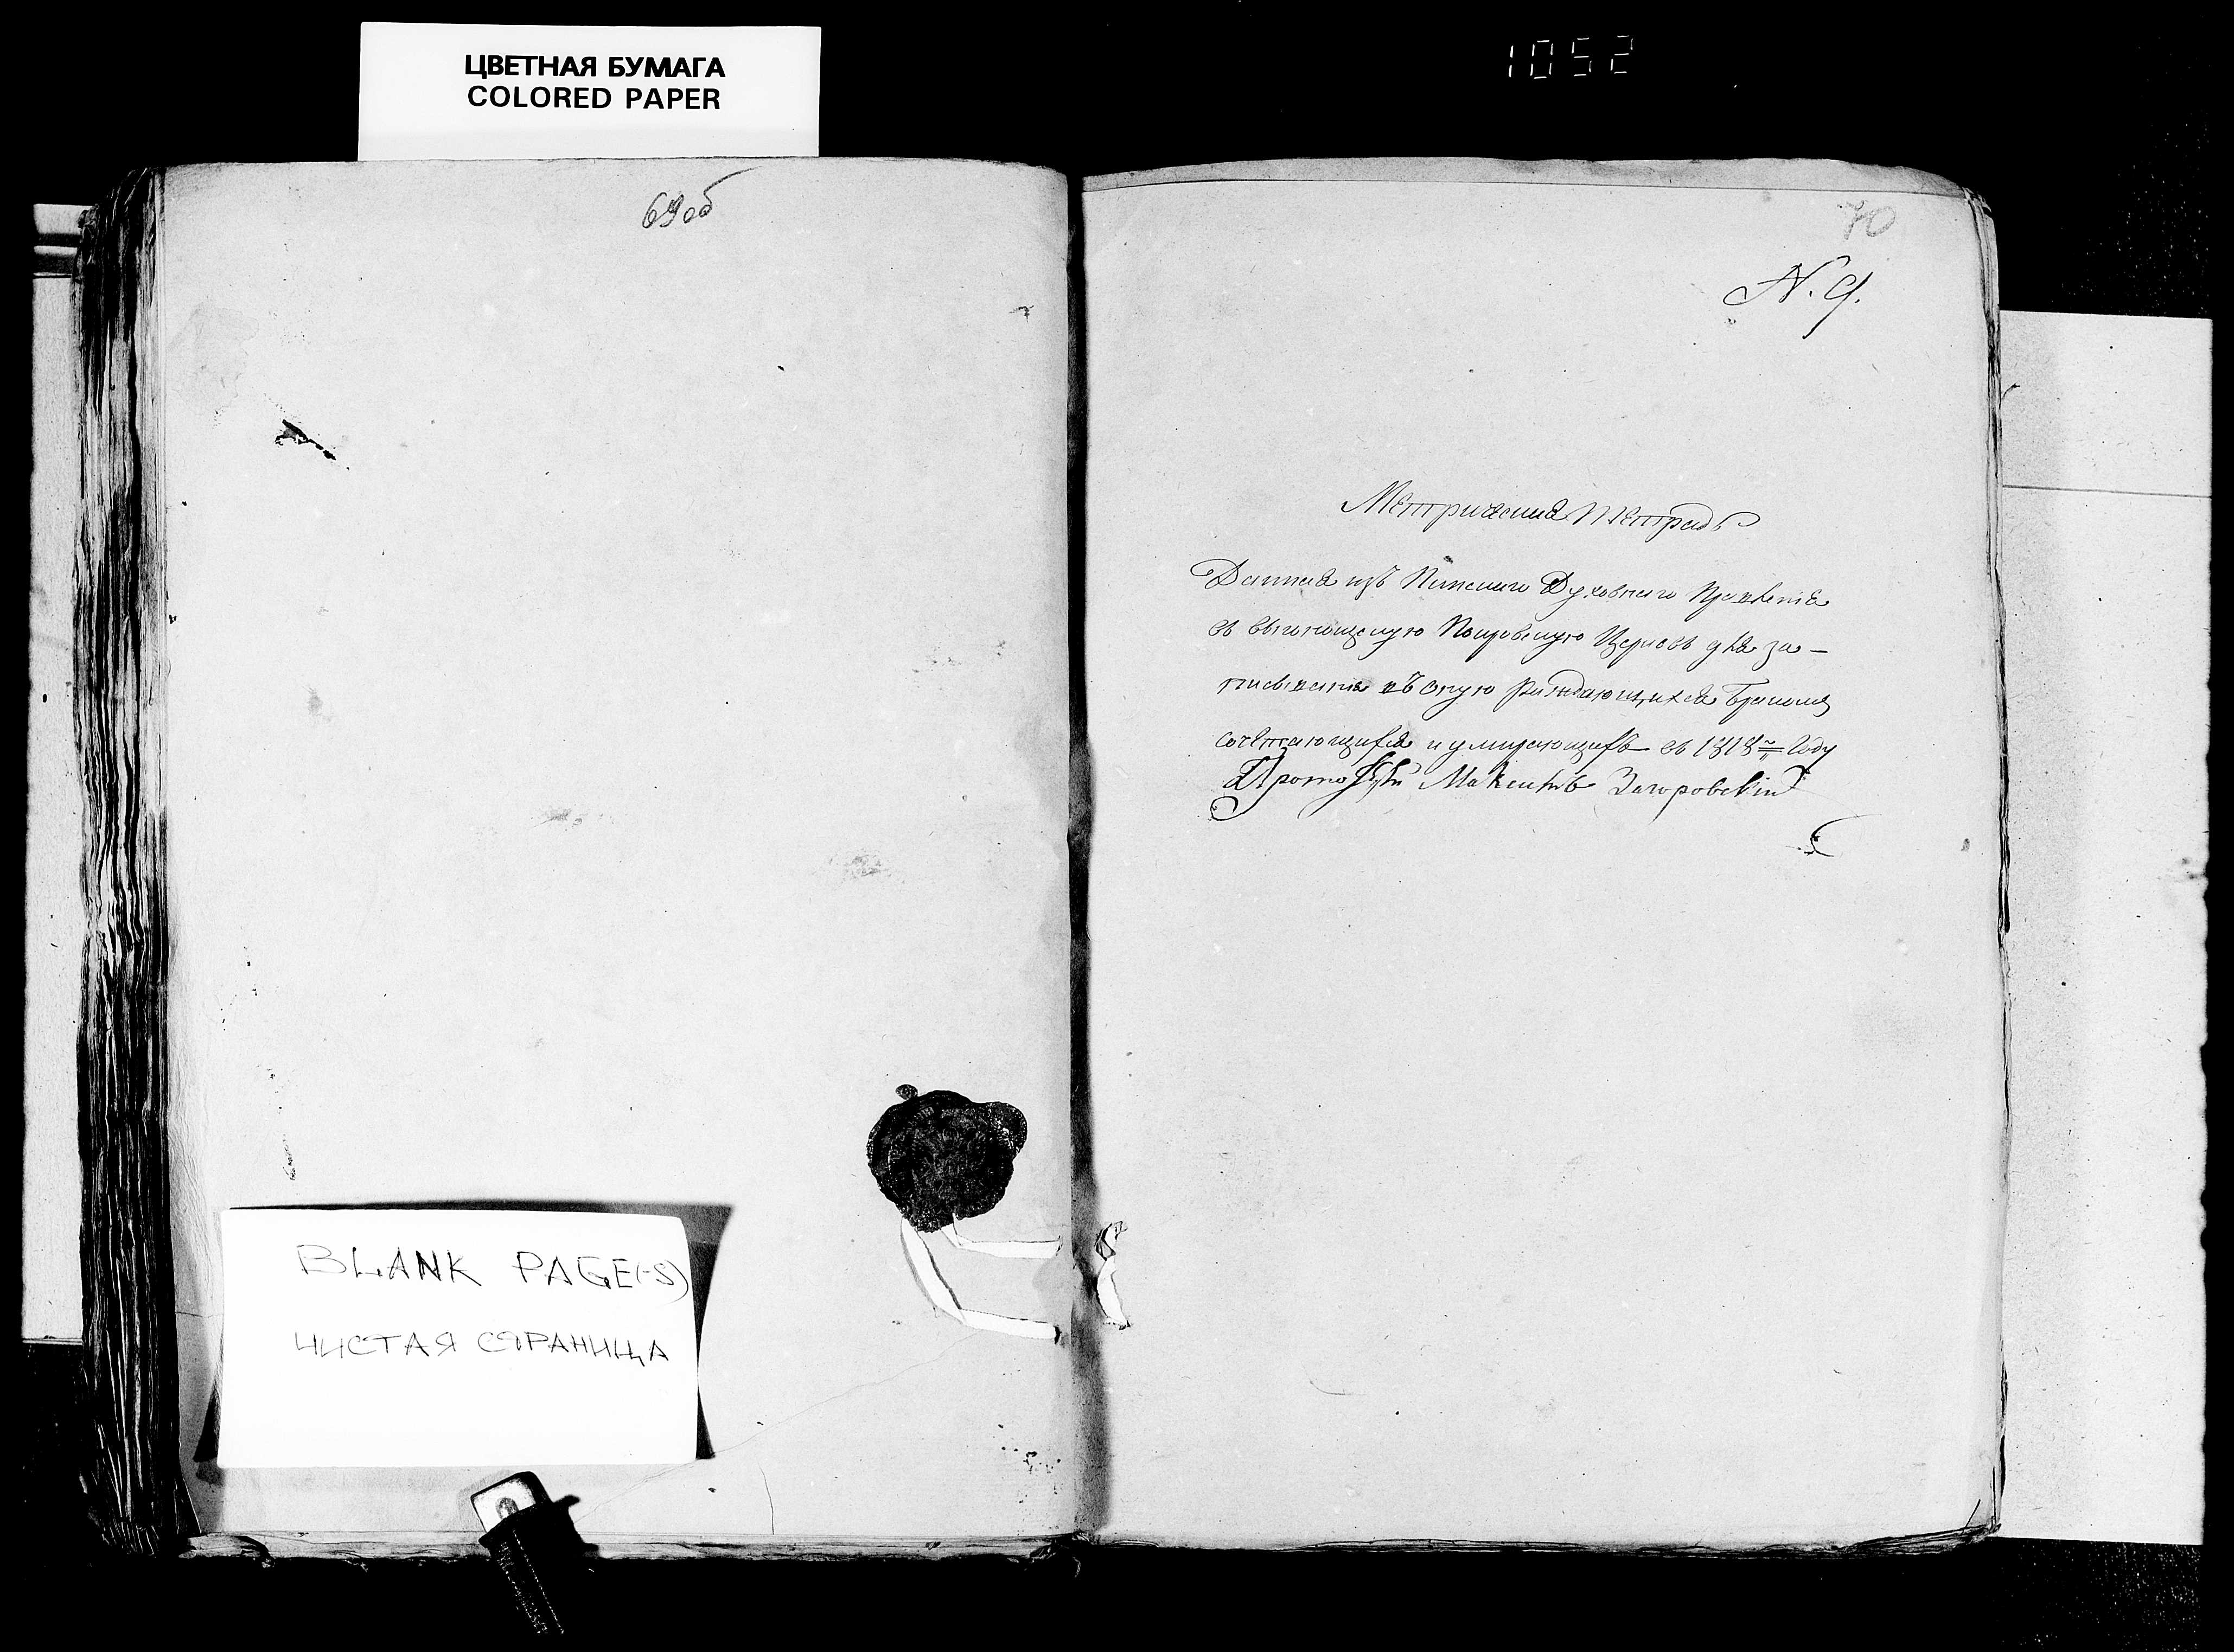 ЦВЕТНАЯ БУМАГА
COLORED PAPER
1052
69об
70
N. 9.
Метрическая Тетрадь
Данная изъ Пинского Духовнаго Правленія
въ Покровскую Церковь для за-
писыванія въ оную раждающихся бракомъ
сочетающихся и умирающихъ въ 1818 году
Прото Максимъ Загоровскій
BLANK PAGE(-S)
ЧИСТАЯ СТРАНИЦА